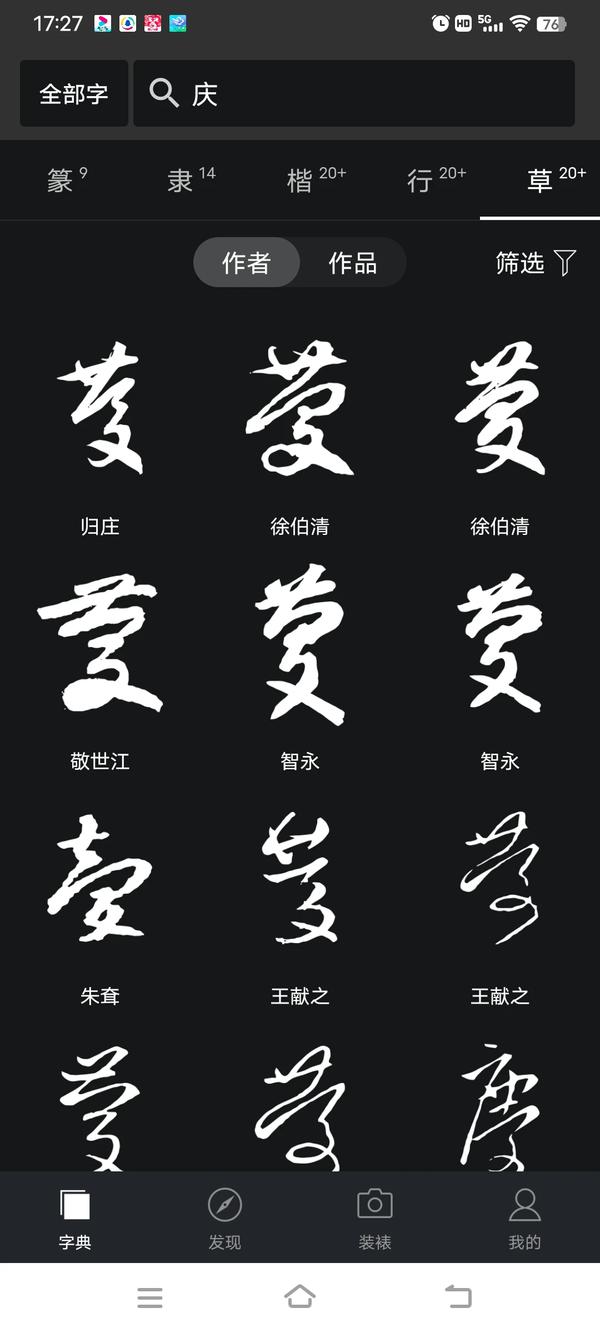 17:27 HD 5G 76
全部字 庆
篆 9 隶 14 楷 20+ 行 20+ 草 20+
作者 作品 筛选
慶 慶 慶
归庄 徐伯清 徐伯清
慶 慶 慶
敬世江 智永 智永
慶 慶 慶
朱耷 王献之 王献之
慶 慶 慶
字典 发现 装裱 我的